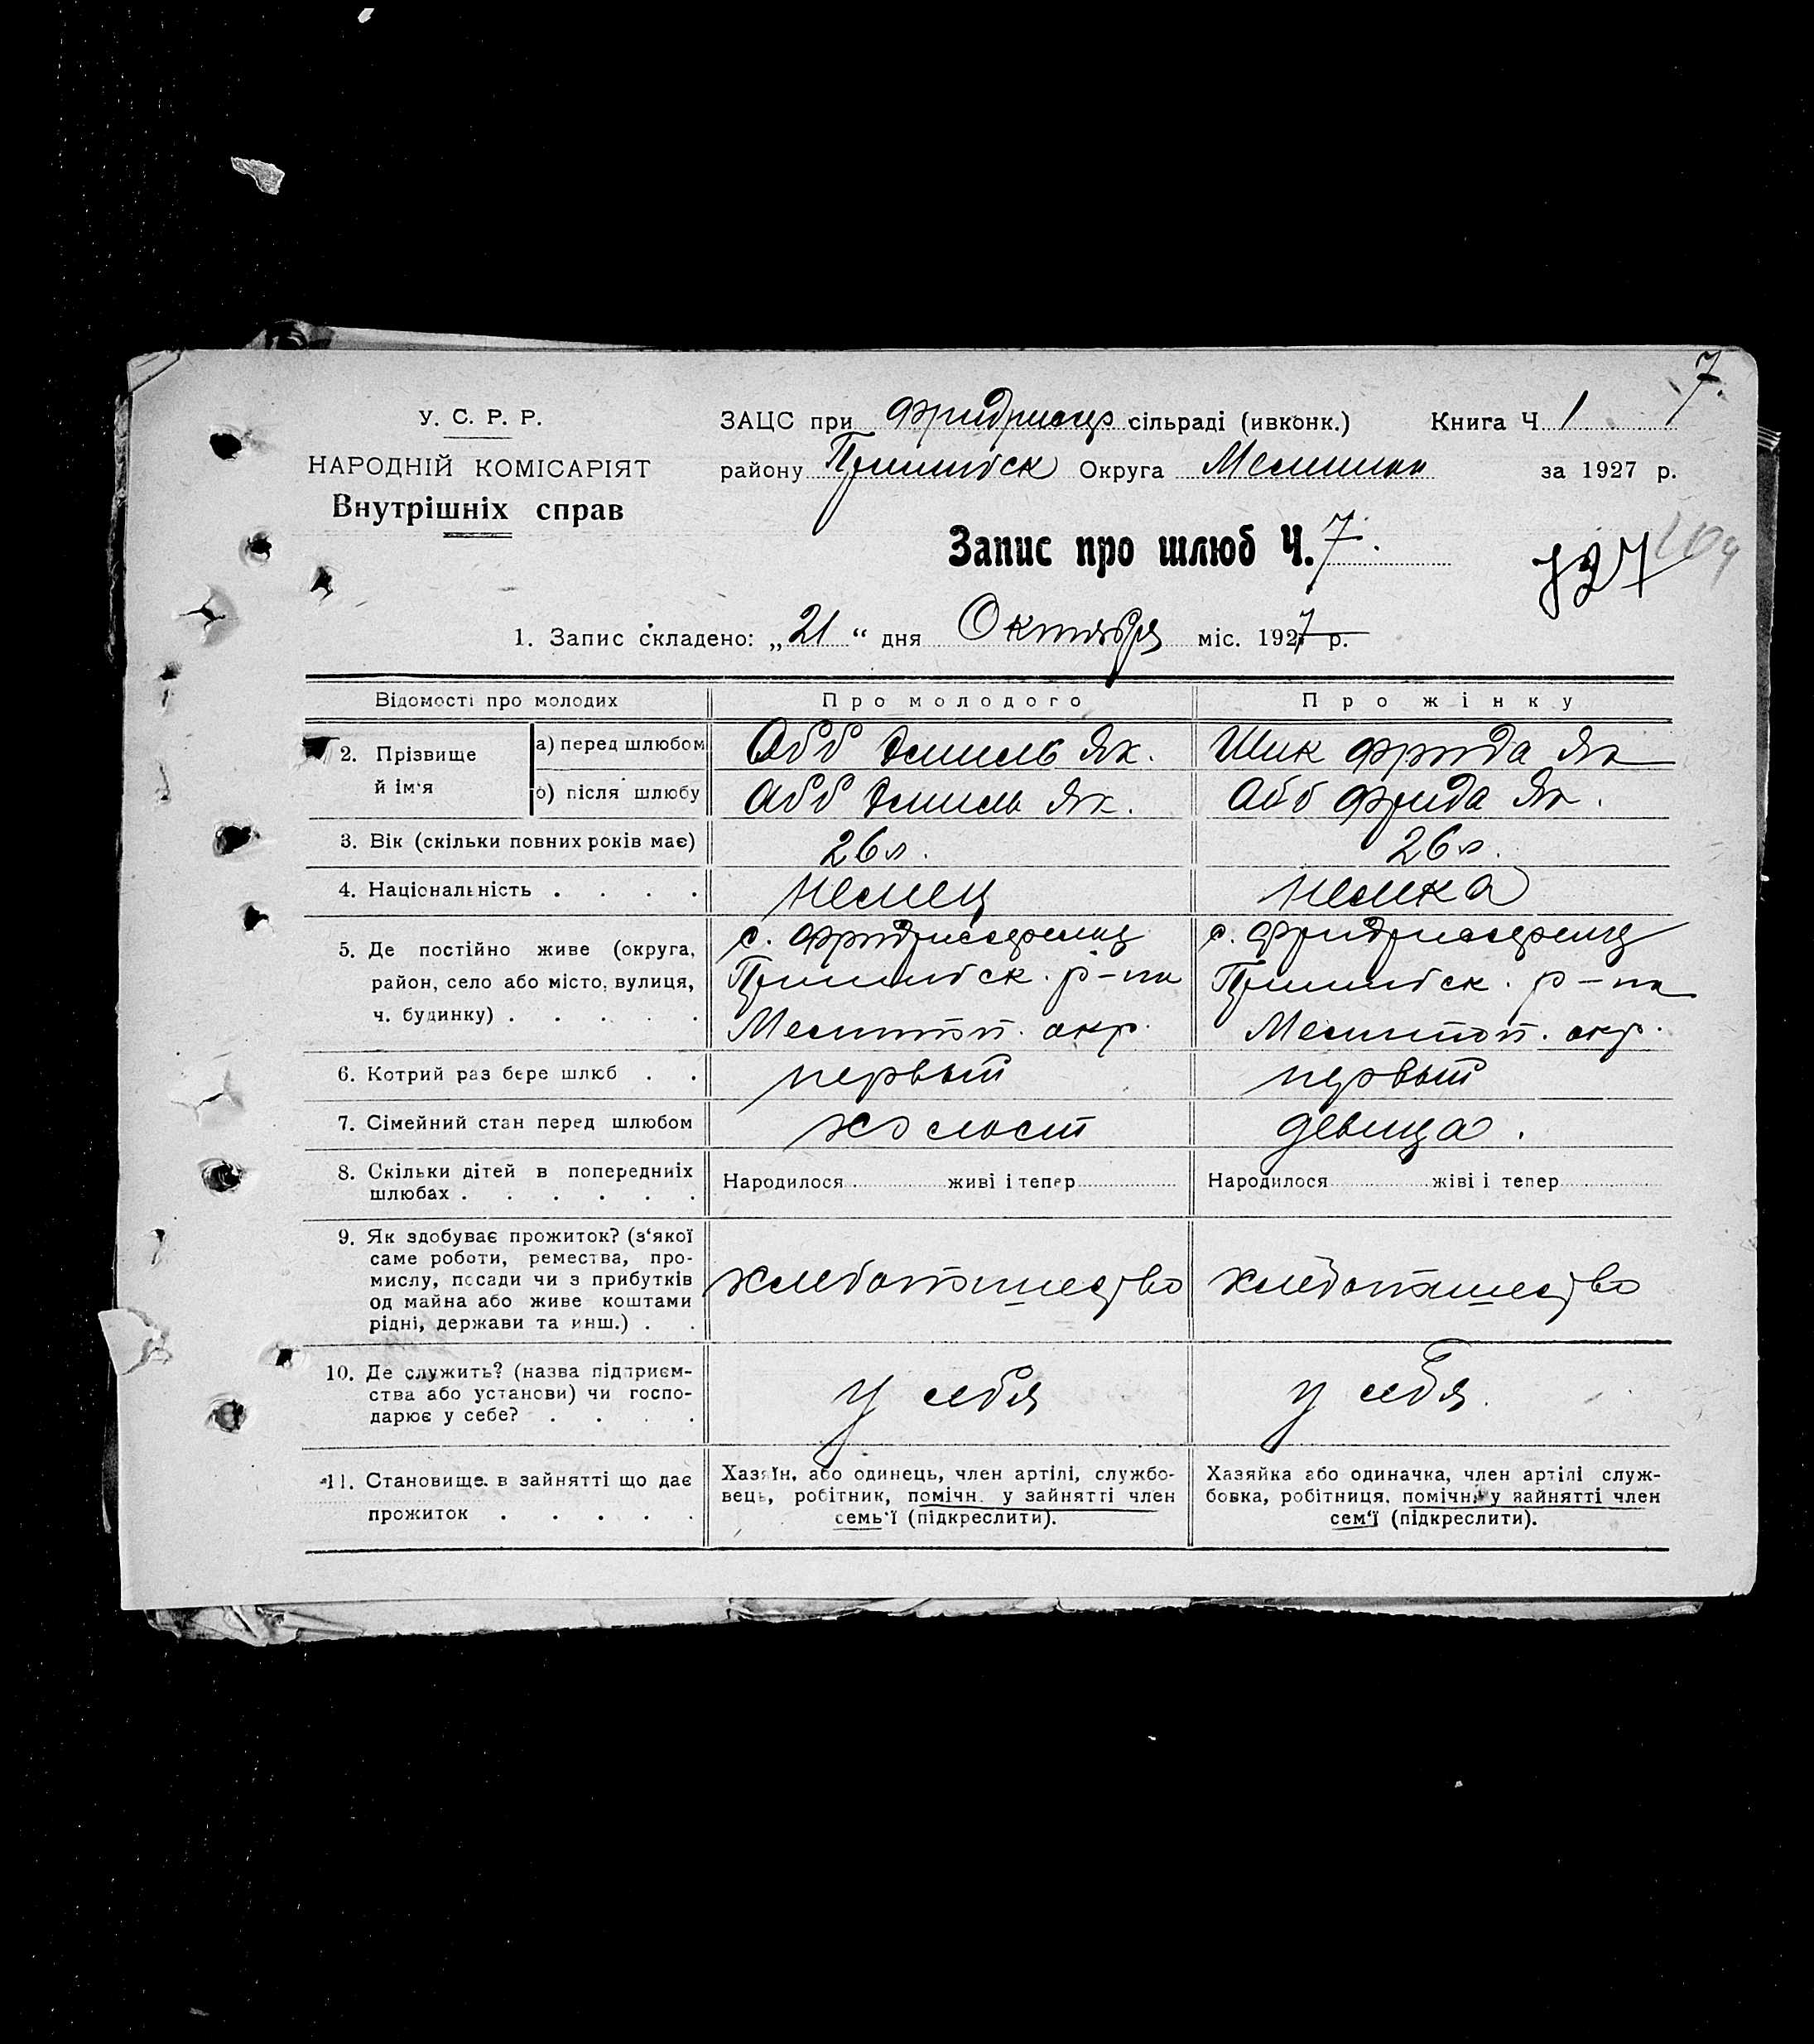 7.
У. С. Р. Р.
НАРОДНІЙ КОМІСАРІЯТ
Внутрішніх справ
ЗАЦС при сільраді (ивконк.) Книга Ч 1
району Пришибск Округа за 1927 р.
Запис про шлюб Ч. 7.
1. Запис складено: „21“ дня Октября міс. 1927 р.
Відомості про молодих Про молодого Про жінку
2. Прізвище й ім'я а) перед шлюбом Абб Эмиль Як. Шик Фрида Як
б) після шлюбу Абб Эмиль Як. Абб Фрида Як.
3. Вік (скільки повних років має) 26 л. 26 л.
4. Національність . . . . немец немка
5. Де постійно живе (округа, район, село або місто, вулиця, ч. будинку) . . . . .
с. Фридрихсфельд
Пришибск. р-на
Мелитоп. окр.
с. Фридрихсфельд
Пришибск. р-на
Мелитоп. окр.
6. Котрий раз бере шлюб . . первый первый
7. Сімейний стан перед шлюбом холост девица.
8. Скільки дітей в попередниіх
шлюбах . . . . . .
Народилося живі і тепер
Народилося жіві і тепер
9. Як здобуває прожиток? (з'якої
саме роботи, ремества, про-
мислу, посади чи з прибутків
од майна або живе коштами
рідні, держави та инш.) . .
хлебопашество
хлебопашество
10. Де служить? (назва підприєм-
ства або установи) чи госпо-
дарює у себе? . . . .
у себя
у себя.
11. Становище. в зайнятті що дає
прожиток . . . . .
Хазяїн, або одинець, член артілі, службо-
вець, робітник, помічн. у зайнятті член
семь'ї (підкреслити).
Хазяйка або одиначка, член артілі служ-
бовка, робітниця, помічн. у зайнятті член
сем'ї (підкреслити).